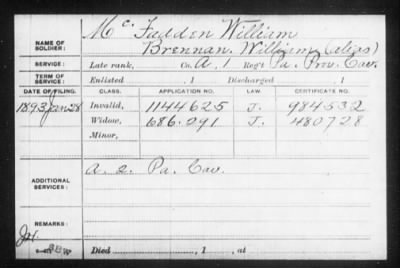 NAME OF SOLDIER: Mc Fadden William
Brennan. William (alias)
SERVICE: Late rank, Co. A, 1 Reg't Pa. Prov. Cav.
TERM OF SERVICE: Enlisted , 1 Discharged , 1
DATE OF FILING. CLASS. APPLICATION NO. LAW. CERTIFICATE NO.
1893 Jan 28 Invalid, 1144625 J. 984532
Widow, 686.291 J. 480728
Minor,
ADDITIONAL SERVICES: A. 2. Pa. Cav.
REMARKS:
Died , 1 , at